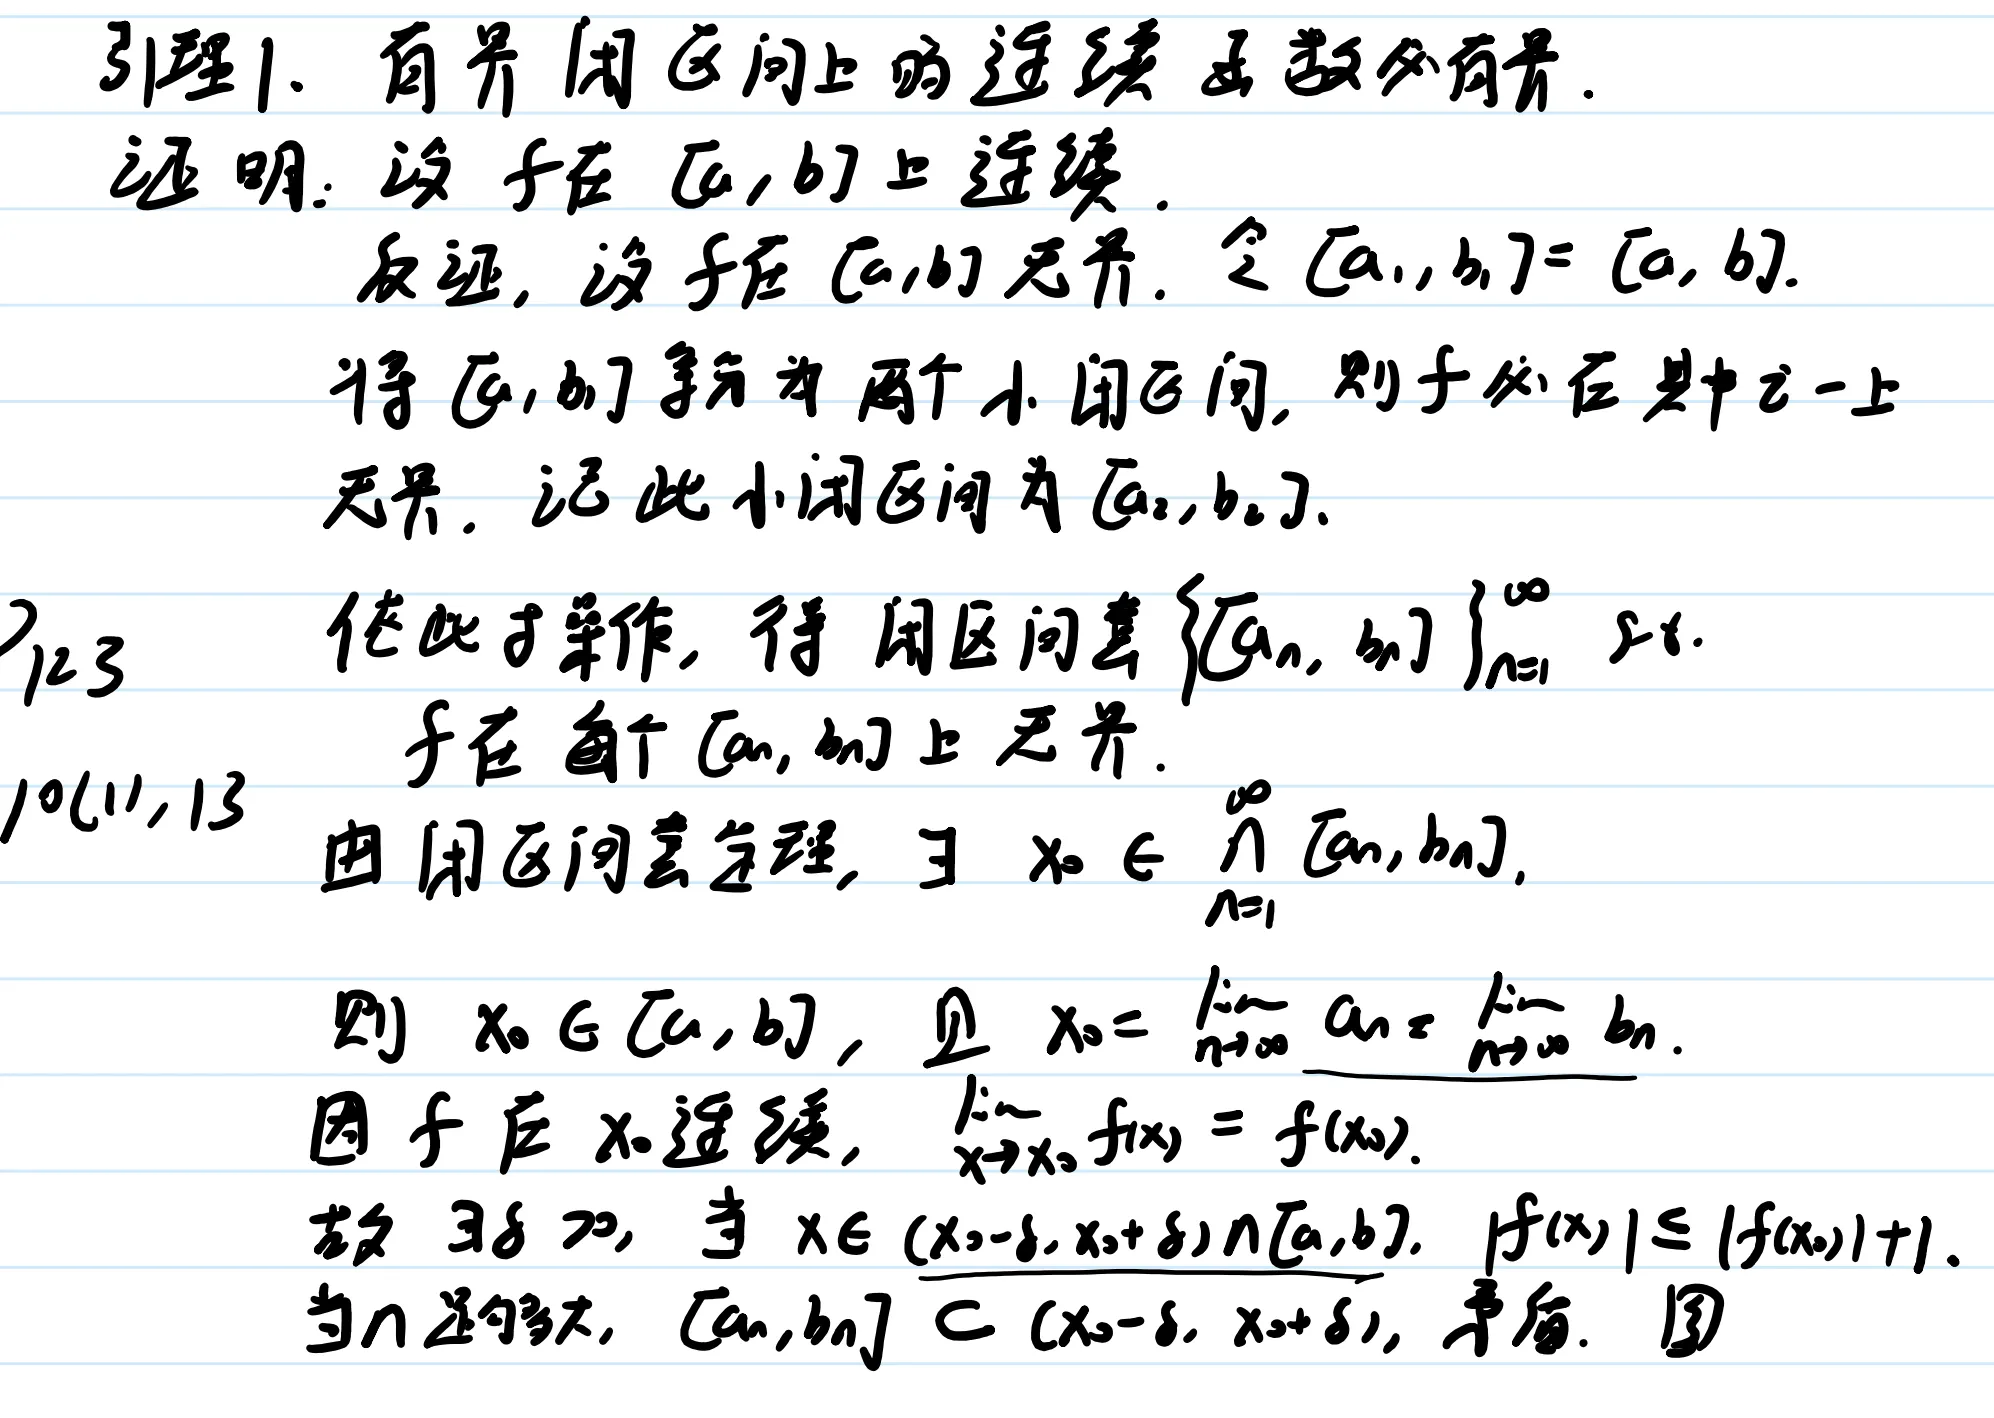 引理1. 有界闭区间上的连续函数必有界.
证明: 设 f在 [a, b] 上连续.
反证, 设 f在 [a, b] 无界. 令 [a₁, b₁] = [a, b].
将 [a₁, b₁] 等分为 两个小闭区间, 则 f 必在其中之一上
无界. 记此小闭区间为 [a₂, b₂].
依此才操作, 得 闭区间套 {[aₙ, bₙ]}ₙ₌₁^∞ s.t.
P123
f在每个 [aₙ, bₙ] 上无界.
10(1), 13
由闭区间套定理, ∃ x₀ ∈ ∩ₙ₌₁^∞ [aₙ, bₙ].
则 x₀ ∈ [a, b], 且 x₀ = lim_{n→∞} aₙ = lim_{n→∞} bₙ.
因 f 在 x₀ 连续, lim_{x→x₀} f(x) = f(x₀).
故 ∃δ>0, 当 x∈ (x₀-δ, x₀+δ)∩[a, b], |f(x)| ≤ |f(x₀)|+1.
当n足够大, [aₙ, bₙ] ⊂ (x₀-δ, x₀+δ), 矛盾.